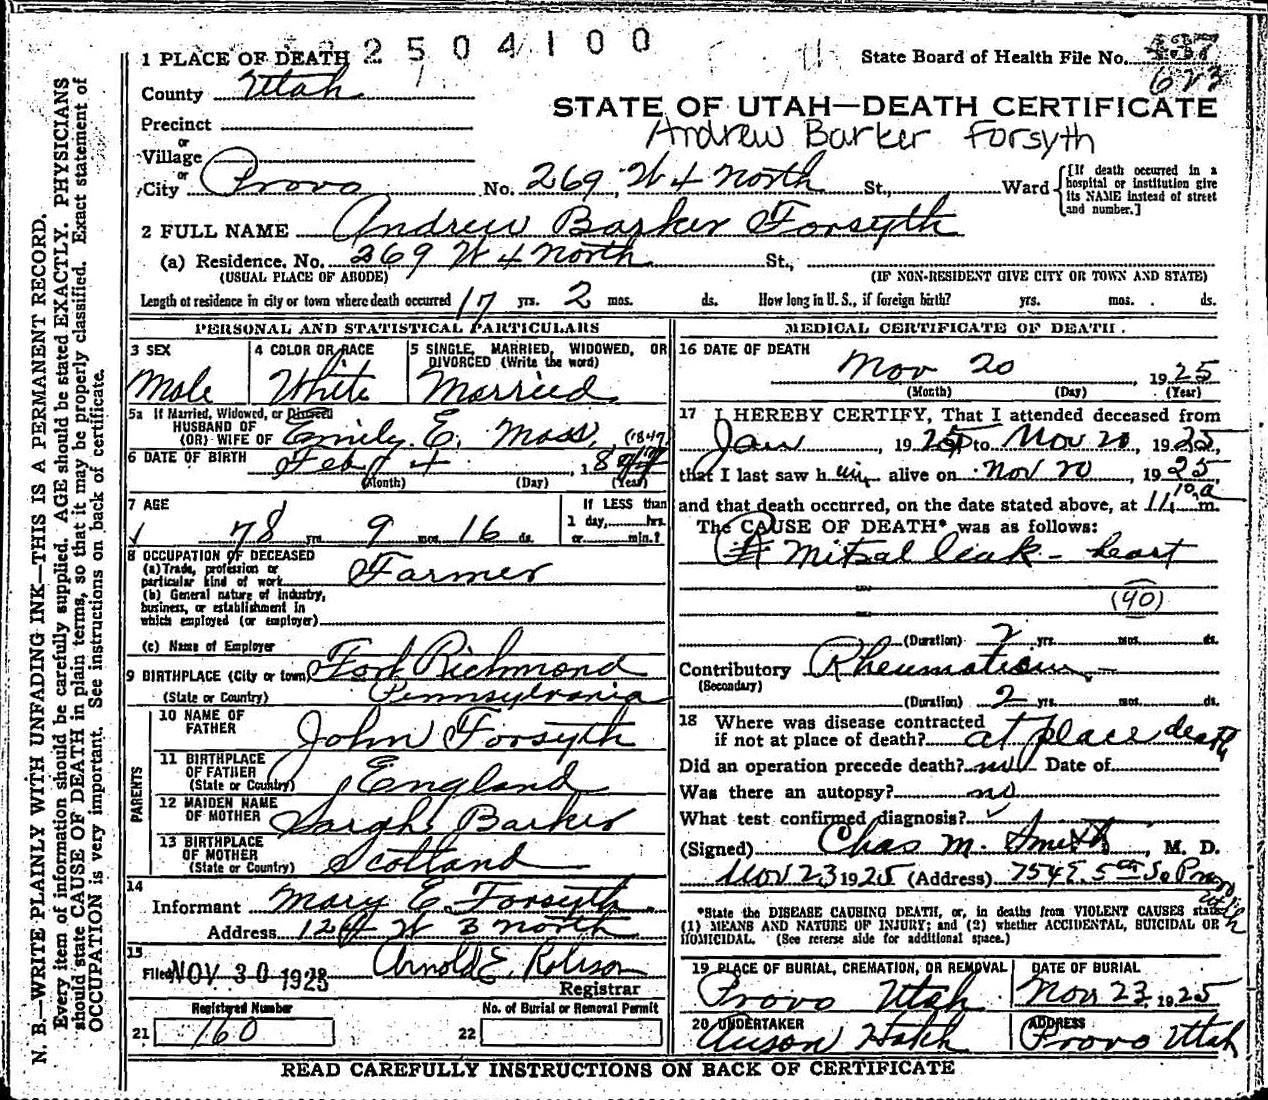 2504100
1 PLACE OF DEATH
State Board of Health File No. 437
623
County Utah
STATE OF UTAH—DEATH CERTIFICATE
Precinct
Andrew Barker Forsyth
or
Village
or
City Provo No. 269 W 4 North St., Ward
[If death occurred in a hospital or institution give its NAME instead of street and number.]
2 FULL NAME Andrew Barker Forsyth
(a) Residence, No. 269 W 4 North St.,
(USUAL PLACE OF ABODE) (IF NON-RESIDENT GIVE CITY OR TOWN AND STATE)
Length of residence in city or town where death occurred 17 yrs. 2 mos. ds. How long in U. S., if foreign birth? yrs. mos. ds.
PERSONAL AND STATISTICAL PARTICULARS
3 SEX
Male
4 COLOR OR RACE
White
5 SINGLE, MARRIED, WIDOWED, OR
DIVORCED (Write the word)
Married
5a If Married, Widowed, or Divorced
HUSBAND OF
(OR) WIFE OF Emily E. Moss (1847
6 DATE OF BIRTH Feb 4 18
(Month) (Day) (Year)
7 AGE
78 yrs. 9 mos. 16 ds.
If LESS than
1 day, hrs.
or min.?
8 OCCUPATION OF DECEASED
(a) Trade, profession or
particular kind of work Farmer
(b) General nature of industry,
business, or establishment in
which employed (or employer)
(c) Name of Employer
9 BIRTHPLACE (City or town) Fort Richmond
(State or Country) Pennsylvania
PARENTS
10 NAME OF
FATHER John Forsyth
11 BIRTHPLACE
OF FATHER
(State or Country) England
12 MAIDEN NAME
OF MOTHER Sargh Barker
13 BIRTHPLACE
OF MOTHER
(State or Country) Scotland
14
Informant Mary E. Forsyth
Address W 3 North
15
Filed NOV 30 1925 Arnold E. Robison
Registrar
Registered Number
21 160
No. of Burial or Removal Permit
22
MEDICAL CERTIFICATE OF DEATH.
16 DATE OF DEATH
Nov 20, 1925
(Month) (Day) (Year)
17 I HEREBY CERTIFY, That I attended deceased from
Jan, 1925 to Nov 20, 1925,
that I last saw him alive on Nov 20, 1925,
and that death occurred, on the date stated above, at 11 10 a m.
The CAUSE OF DEATH* was as follows:
Mitral leak - heart
(90)
(Duration) 2 yrs. mos. ds.
Contributory Rheumatism
(Secondary)
(Duration) 2 yrs. mos. ds.
18 Where was disease contracted
if not at place of death? at place death
Did an operation precede death? no Date of
Was there an autopsy? no
What test confirmed diagnosis?
(Signed) Chas M. Smith, M. D.
Nov 23 1925 (Address) 754 E. 5th So Provo
Utah
*State the DISEASE CAUSING DEATH, or, in deaths from VIOLENT CAUSES state
(1) MEANS AND NATURE OF INJURY; and (2) whether ACCIDENTAL, SUICIDAL OR
HOMICIDAL. (See reverse side for additional space.)
19 PLACE OF BURIAL, CREMATION, OR REMOVAL
Provo Utah
DATE OF BURIAL
Nov 23, 1925
20 UNDERTAKER
Anson Hatch
ADDRESS
Provo Utah
READ CAREFULLY INSTRUCTIONS ON BACK OF CERTIFICATE
N. B.—WRITE PLAINLY WITH UNFADING INK—THIS IS A PERMANENT RECORD.
Every item of information should be carefully supplied. AGE should be stated EXACTLY. PHYSICIANS
should state CAUSE OF DEATH in plain terms, so that it may be properly classified. Exact statement of
OCCUPATION is very important. See instructions on back of certificate.